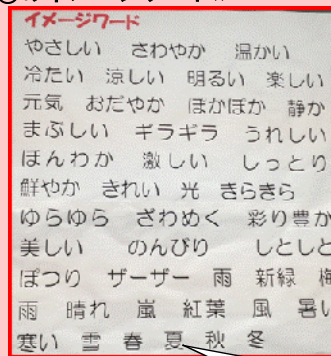 イメージワード
やさしい さわやか 温かい
冷たい 涼しい 明るい 楽しい
元気 おだやか ぽかぽか 静か
まぶしい ギラギラ うれしい
ほんわか 激しい しっとり
鮮やか きれい 光 きらきら
ゆらゆら ざわめく 彩り豊か
美しい のんびり しとしと
ぽつり ザーザー 雨 新緑 梅
雨 晴れ 嵐 紅葉 風 暑い
寒い 雪 春 夏 秋 冬